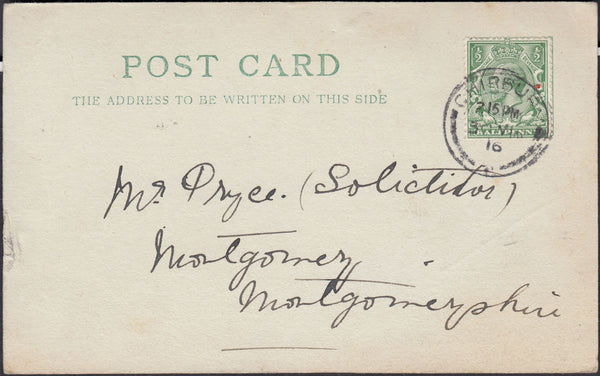 POST CARD
THE ADDRESS TO BE WRITTEN ON THIS SIDE
½ ½
HALFPENNY
CHIRBURY
2.15 PM
16
Mr. Pryce. (Solicitor)
Montgomery
Montgomeryshire